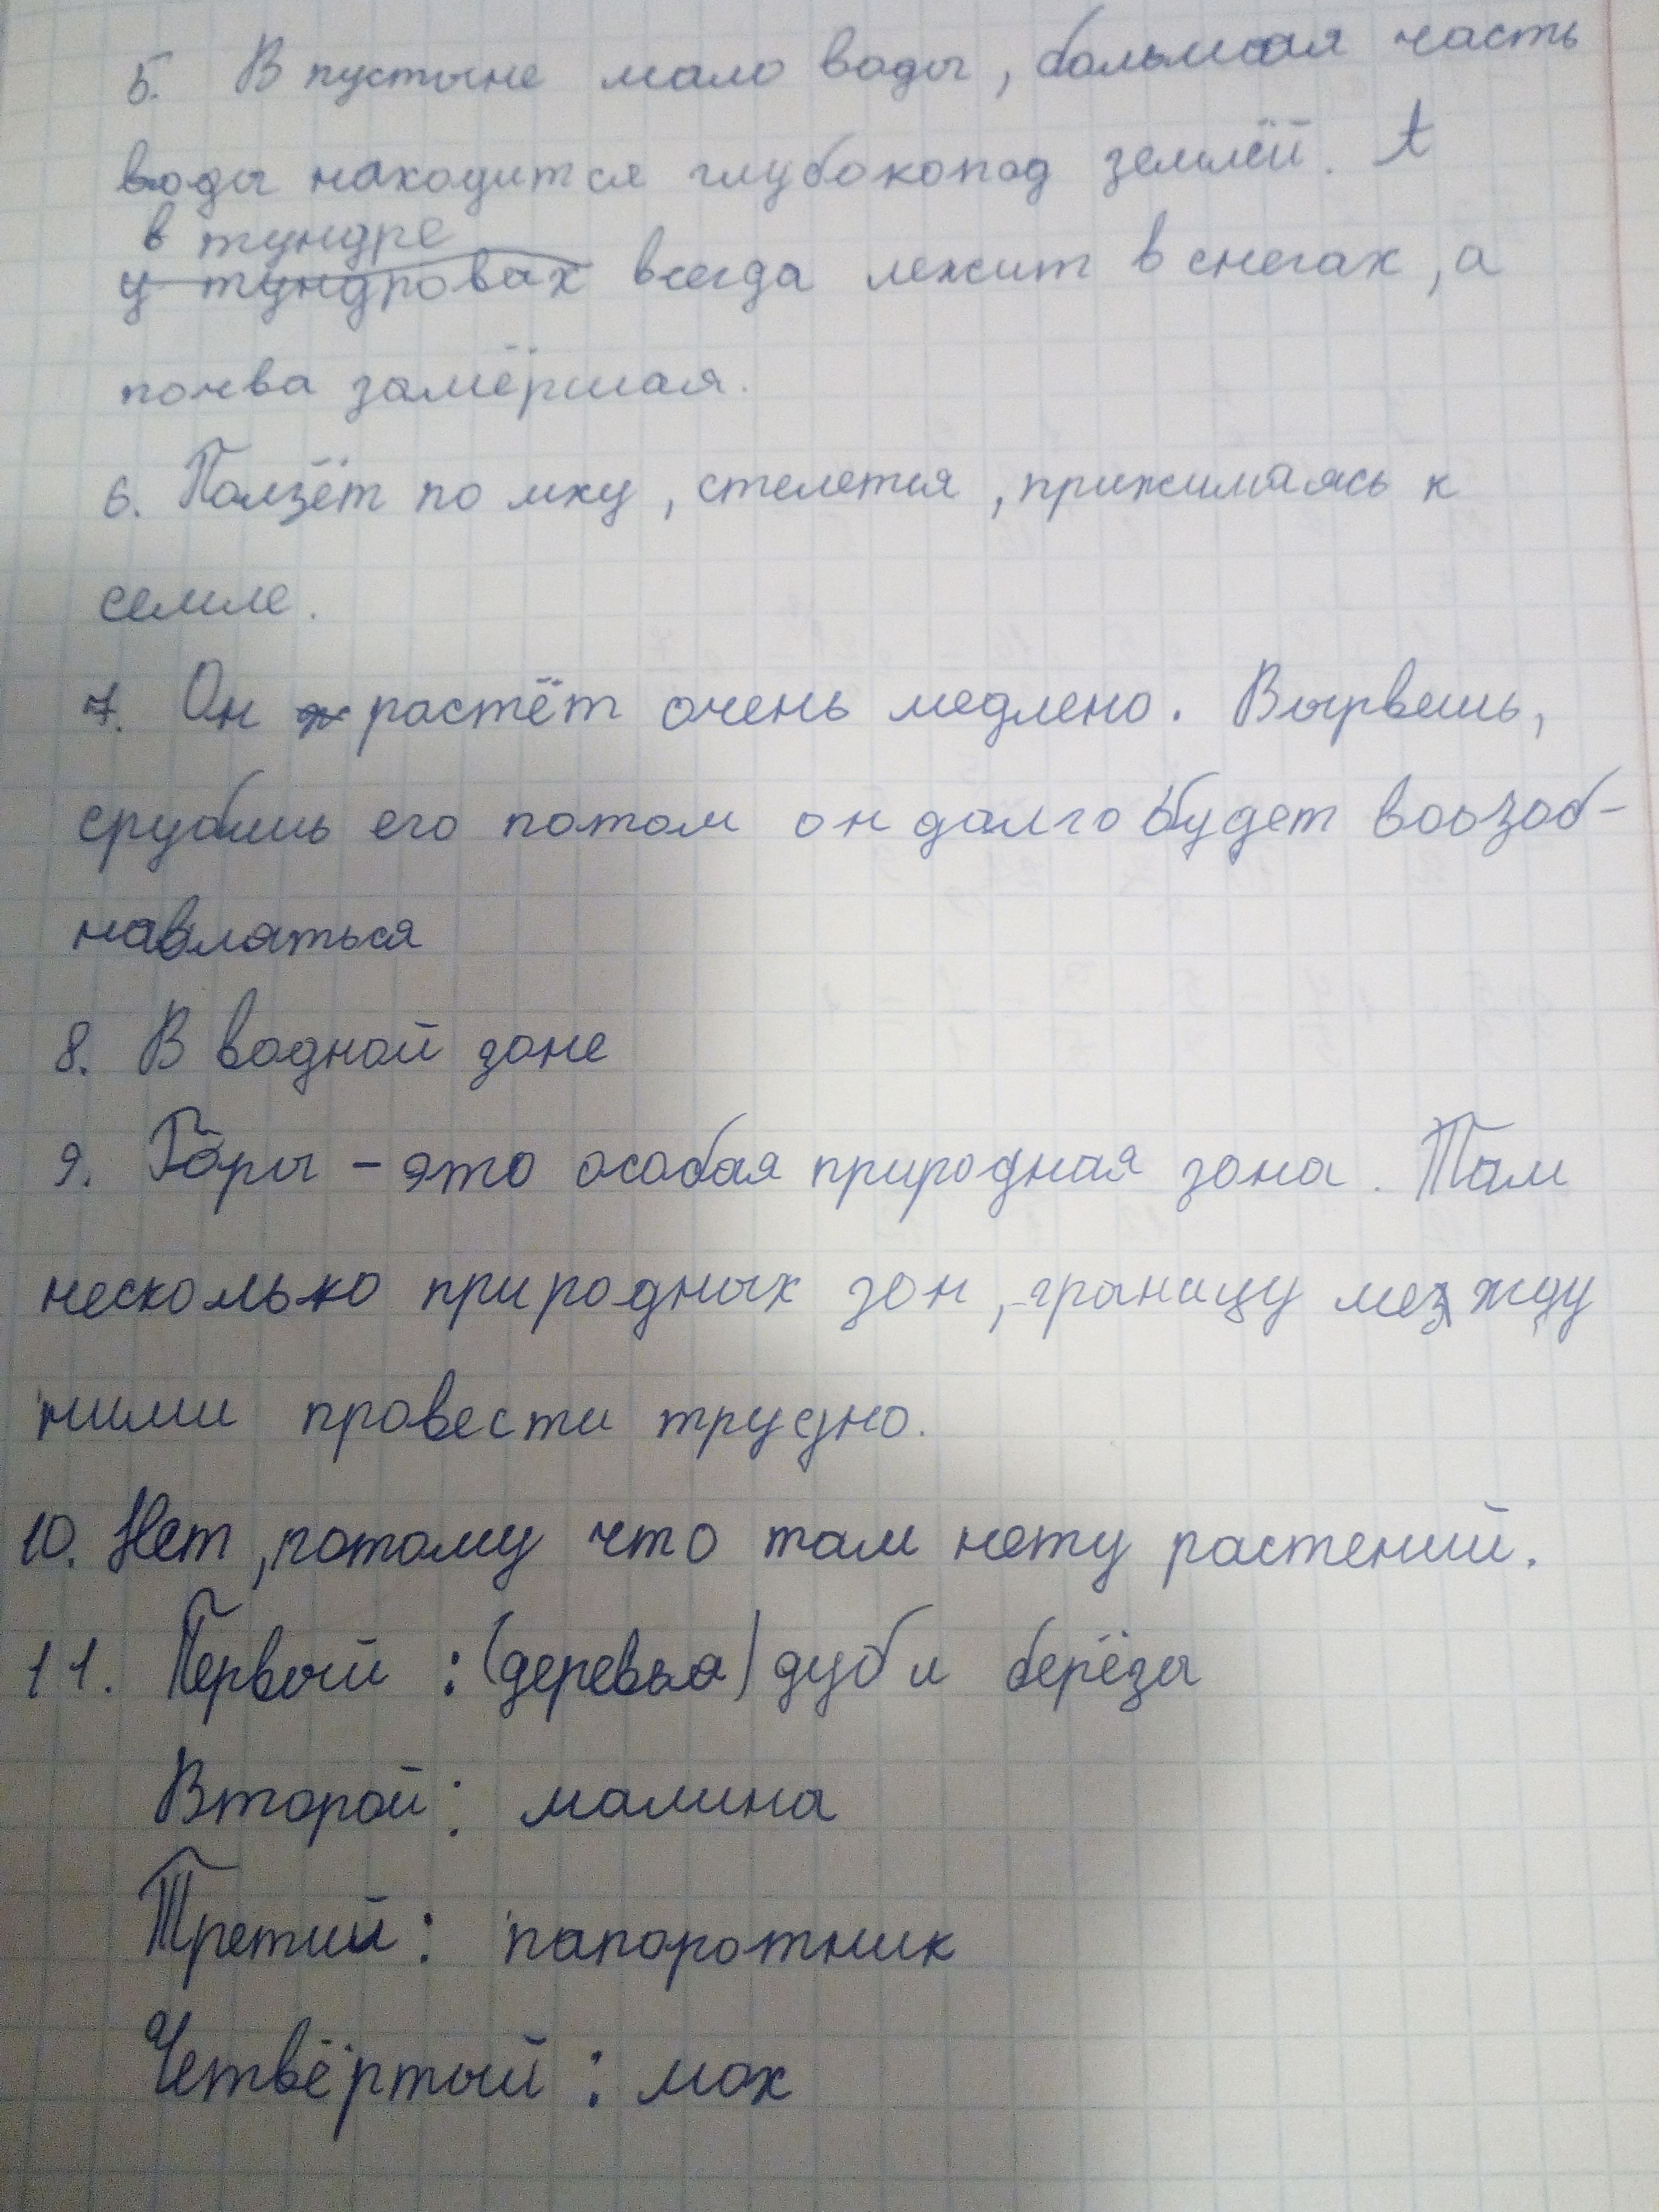 5. В пустыне мало воды, большая часть
воды находится глубокопод землёй. А
в тундре
у тундровах всегда лежит в снегах, а
почва замёршая.
6. Ползёт по мху, стелется, прижимаясь к
семле.
7. Он растёт очень медлено. Вырвешь,
срубишь его потом он долго будет воозоб-
навляться
8. В водной зоне
9. Горы - это особая природная зона. Там
несколько природных зон, границу между
ними провести трудно.
10. Нет, потому что там нету растений.
11. Первый : (деревья) дуб и берёзы
Второй : малина
Третий : папоротник
Четвёртый : мох